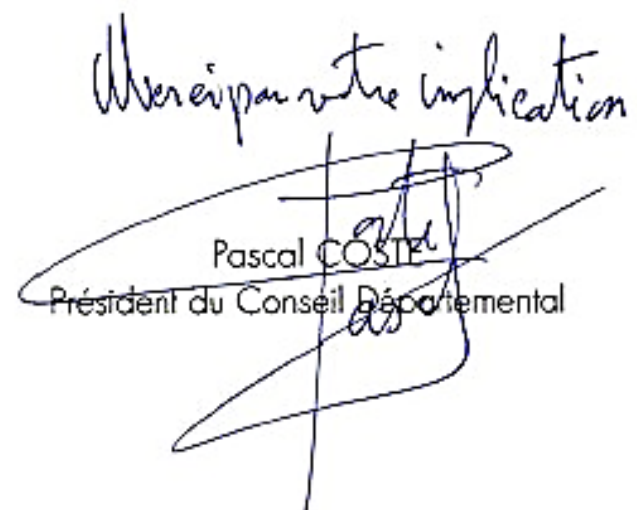 Merci pour votre implication
Pascal COSTE
Président du Conseil Départemental